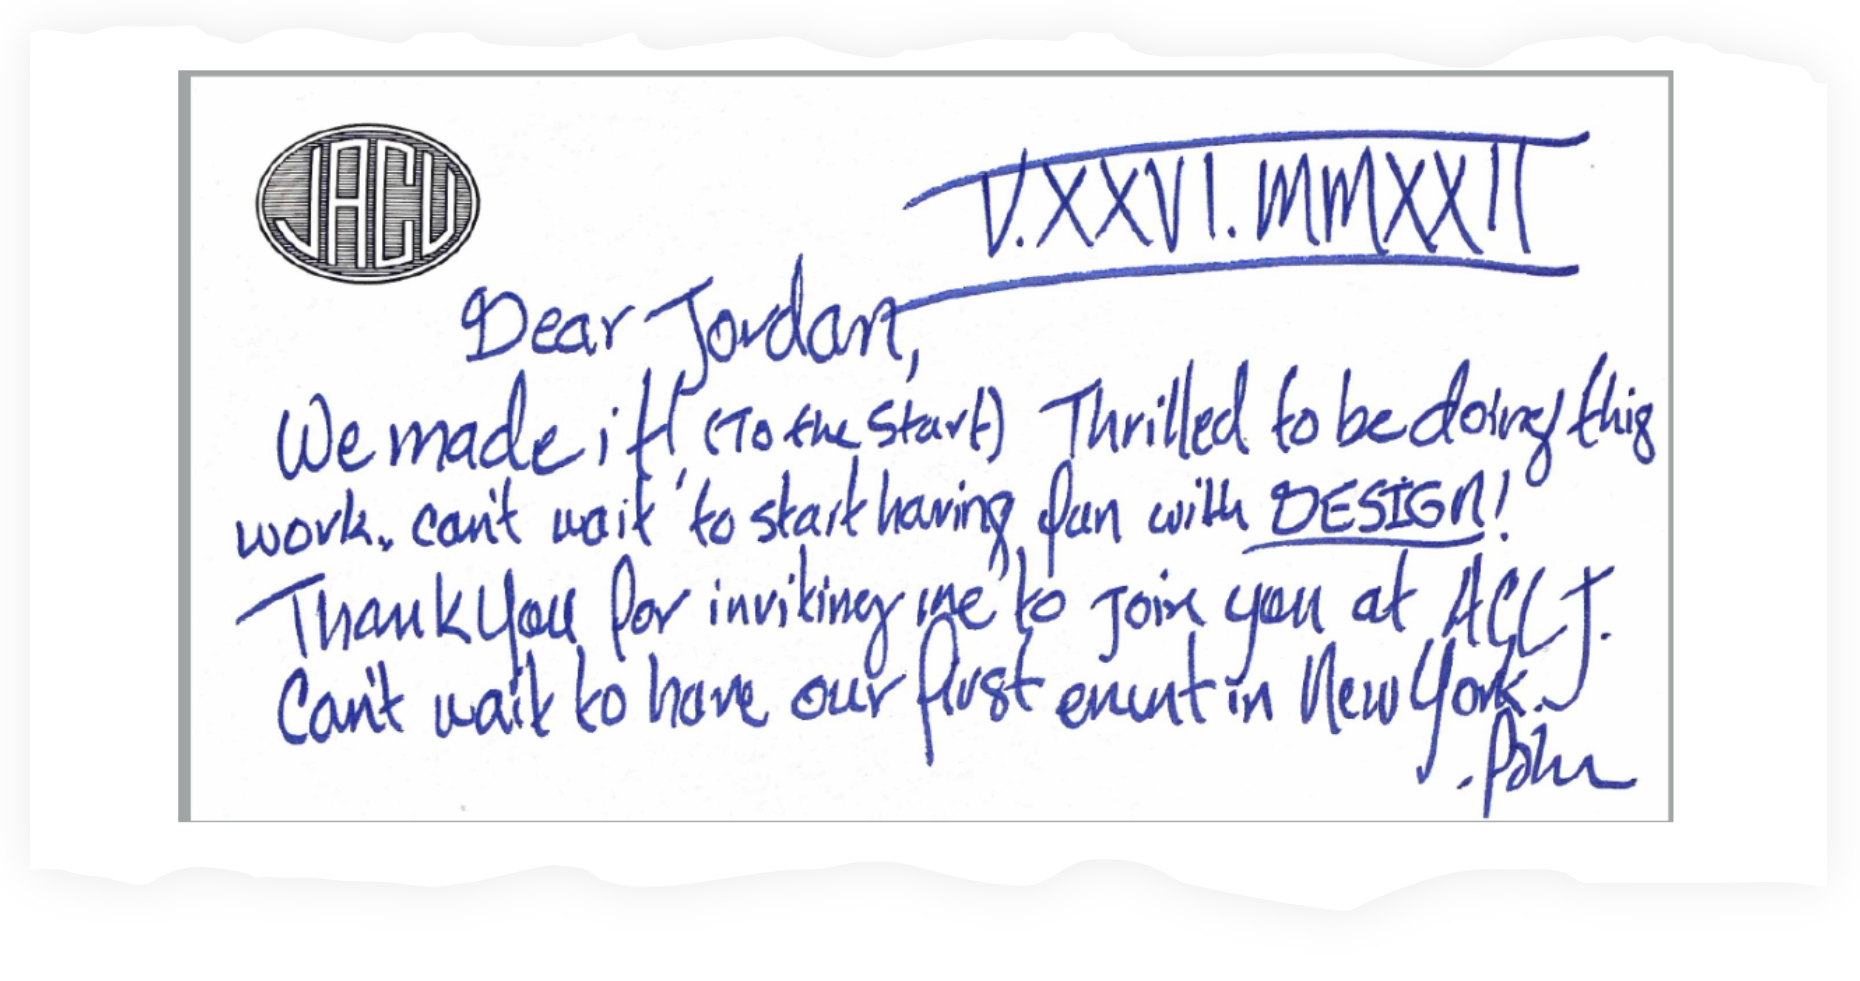 JACU
V.XXVI.MMXXII
Dear Jordan,
We made it! (To the Start) Thrilled to be doing this
work. can't wait to start having fun with DESIGN!
Thank you for inviting me to join you at ACLJ.
Can't wait to have our first event in New York.